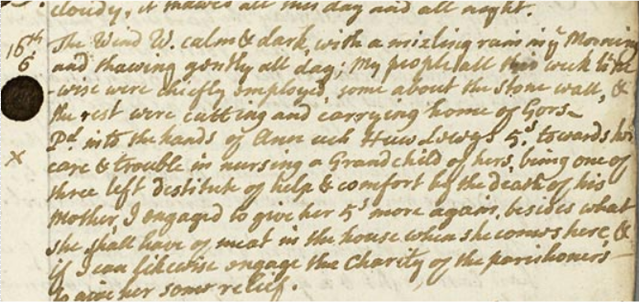 cloudy, it thawed all this day and all night.
16th The Wind W. calm & dark, with a mizling rain in ye Morning
6 and thawing gently all day; My people all this week
-wise were chiefly employed, some about the stone wall, &
the rest were cutting and carrying home of Gors
Pd. into the hands of Ann uch Huw Lewys 5s. towards her
X care & trouble in nursing a Grandchild of hers, being one of
three left destitute of help & comfort by the death of his
Mother, I engaged to give her 5s more again, besides what
she shall have of meat in the house when she comes here, &
if I can likewise engage the Charity of the parishoners
to give her some relief.